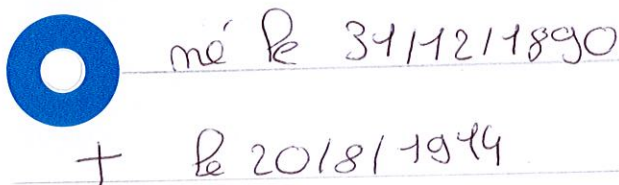 né le 31/12/1890
+ le 20/8/1914